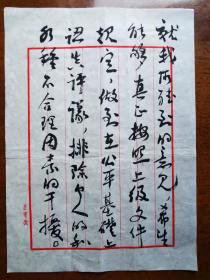 就我所聽到的意见，希望
能够真正按照上级文件
规定，做到在公平基礎上
认真评议，排除个人的和
各種不合理因素的干擾。